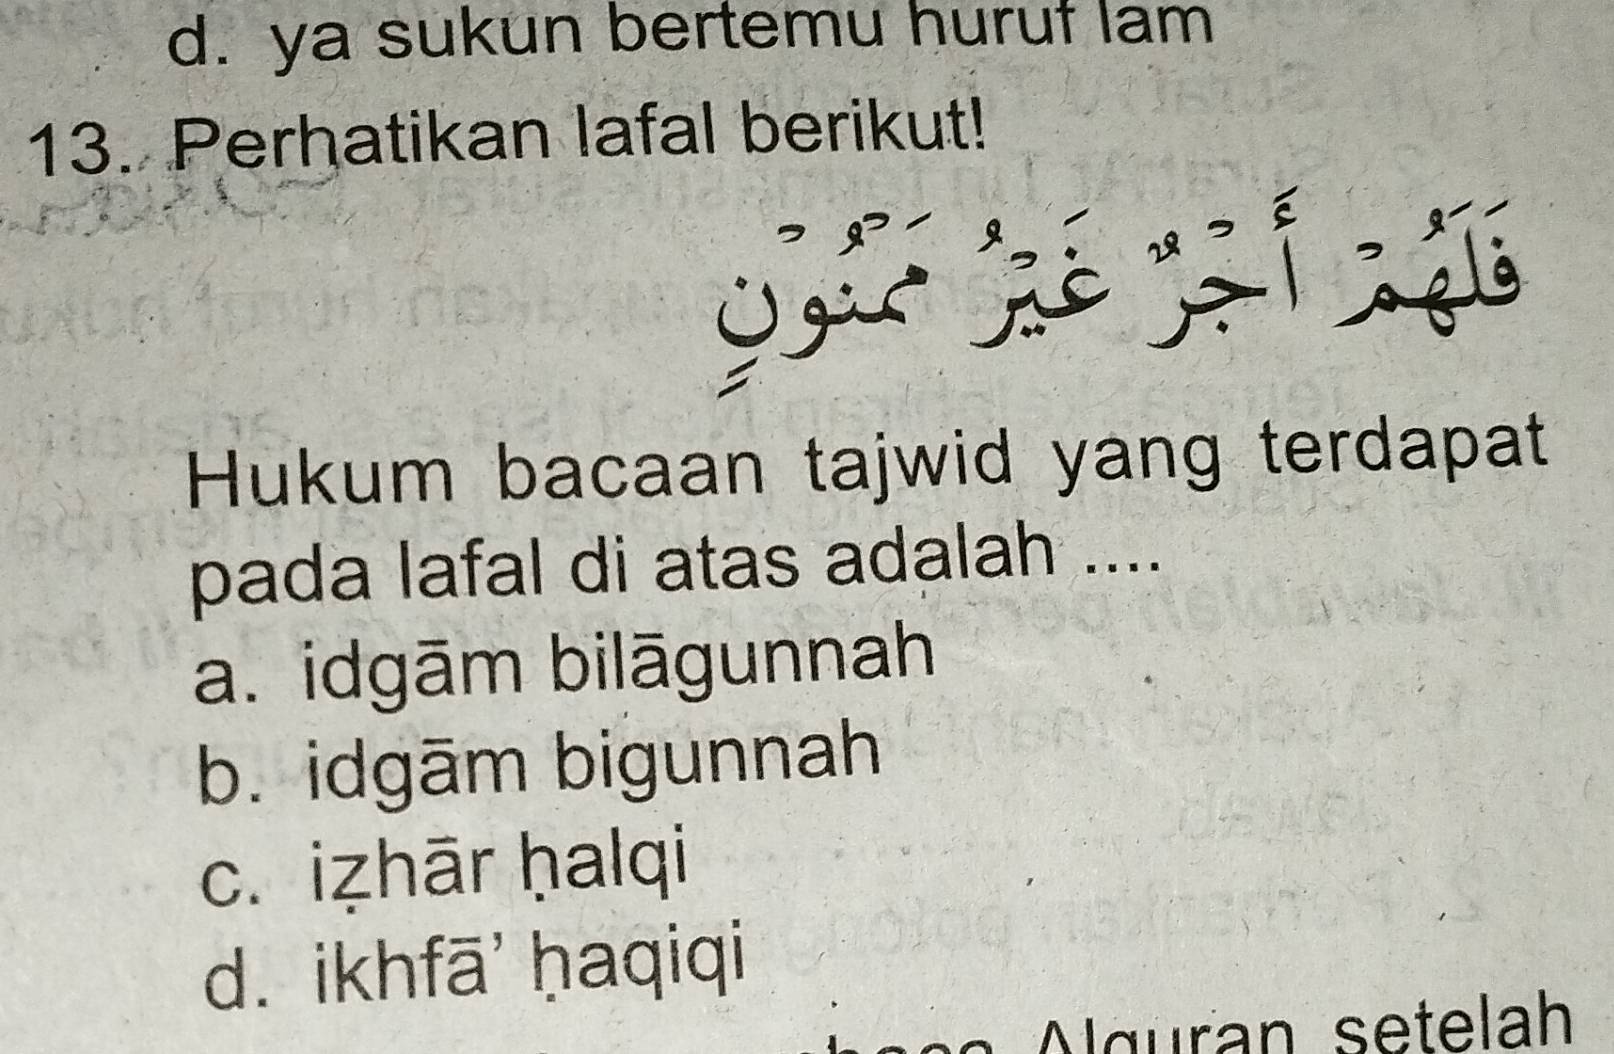 d. ya sukun bertemu huruf lam
13. Perhatikan lafal berikut!
فَلَهُمْ أَجْرٌ غَيْرُ مَمْنُوْنٍ
Hukum bacaan tajwid yang terdapat
pada lafal di atas adalah ....
a. idgām bilāgunnah
b. idgām bigunnah
c. iẓhār ḥalqi
d. ikhfā’ ḥaqiqi
Alquran setelah